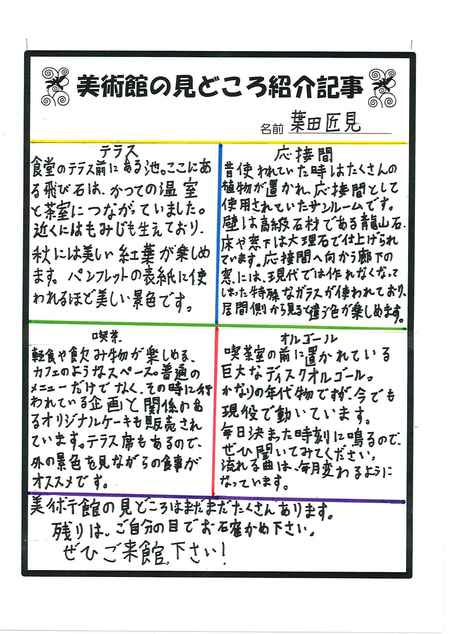 美術館の見どころ紹介記事
名前 葉田匠見
テラス
食堂のテラス前にある池。ここにあ
る飛び石は、かつての温室
と茶室につながっていました。
近くにはもみじも生えており、
秋には美しい紅葉が楽しめ
ます。パンフレットの表紙に使
われるほど美しい景色です。
応接間
昔使われていた時はたくさんの
植物が置かれ、応接間として
使用されていたサンルームです。
壁は高級石材である龍山石、
床や窓下は大理石で仕上げられ
ています。応接間へ向かう廊下の
窓には、現代では作れなくなって
しまった特殊なガラスが使われており、
居間側から見ると違う色が楽しめます。
喫茶
軽食や飲み物が楽しめる、
カフェのようなスペース。普通の
メニューだけでなく、その時に行
われている企画と関係のあ
るオリジナルケーキも販売され
ています。テラス席もあるので、
外の景色を見ながらの食事が
オススメです。
オルゴール
喫茶室の前に置かれている
巨大なディスクオルゴール。
かなりの年代物ですが、今でも
現役で動いています。
毎日決まった時刻に鳴るので、
ぜひ聞いてみてください。
流れる曲は、毎月変わるように
なっています。
美術館の見どころはまだまだたくさんあります。
残りは、ご自分の目でお確かめ下さい。
ぜひご来館下さい!